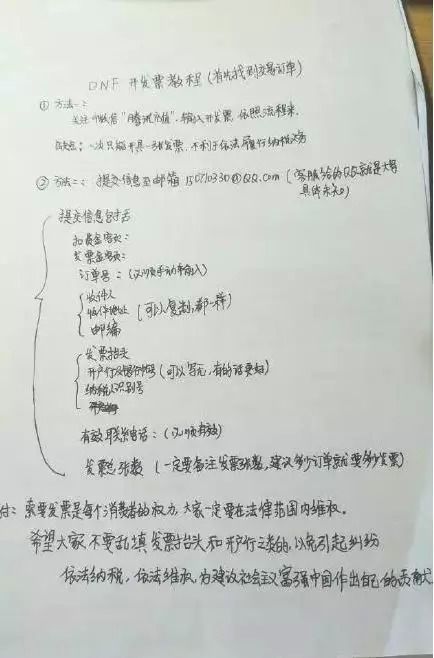 DNF 开发票教程(首先找到交易订单)
① 方法一:
关注微信"腾讯充值",输入开发票,依照流程来,
缺点:一次只能开具一张发票,不利于依法履行纳税义务
② 方法二:提交信息至邮箱 @QQ.com (客服给的QQ
提交信息包括
扣费金额:
发票金额:
订单号:(必须手动输入)
收件人
收件地址 (可以复制,都一样)
邮编
发票抬头
开户行及银行帐号(可以写无,有的话更好)
纳税人识别号
有效联系电话:(必须有效)
发票总张数 (一定要备注发票张数,建议多少订单就要多少发票)
注:索要发票是每个消费者的权力,大家一定要在法律范围内维权。
希望大家不要乱填发票抬头和开户行之类的,以免引起纠纷
依法纳税,依法维权,为建设社会主义富强中国作出自己的贡献